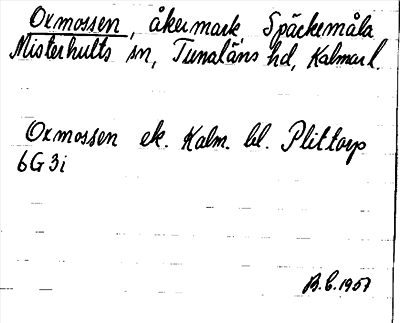 Oxmossen, åkermark Späckemåla
Misterhults sn, Tunaläns hd, Kalmar l.
Oxmossen ek. Kalm. bl. Plittorp
6G3i
B.C. 1957